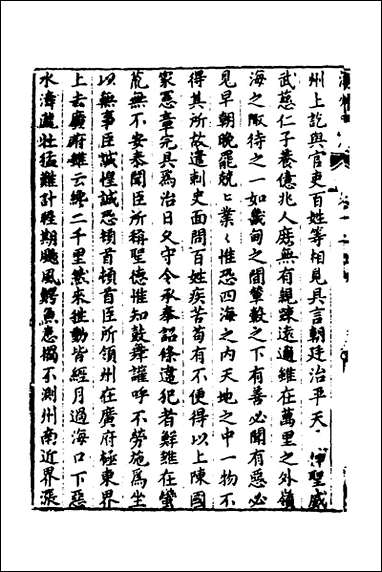 州上訖與官吏百姓等相見具言朝廷治平天神聖威
武慈仁子養億兆人庶無有親疎遠邇雖在萬里之外嶺
海之陬待之一如畿甸之間輦轂之下有善必聞有惡必
見早朝晚罷兢〻業〻惟恐四海之內天地之中一物不
得其所故遣刺史面問百姓疾苦苟有不便得以上陳國
家憲章完具爲治日久守令承奉詔條違犯者鮮雖在蠻
荒無不安泰聞臣所稱聖德惟知鼓舞讙呼不勞施爲坐
以無事臣誠惶誠恐頓首頓首臣所領州在廣府極東界
上去廣府雖云纔二千里然來徃動皆經月過海口下惡
水濤瀧壯猛難計程期颶風鰐魚患禍不測州南近界漲